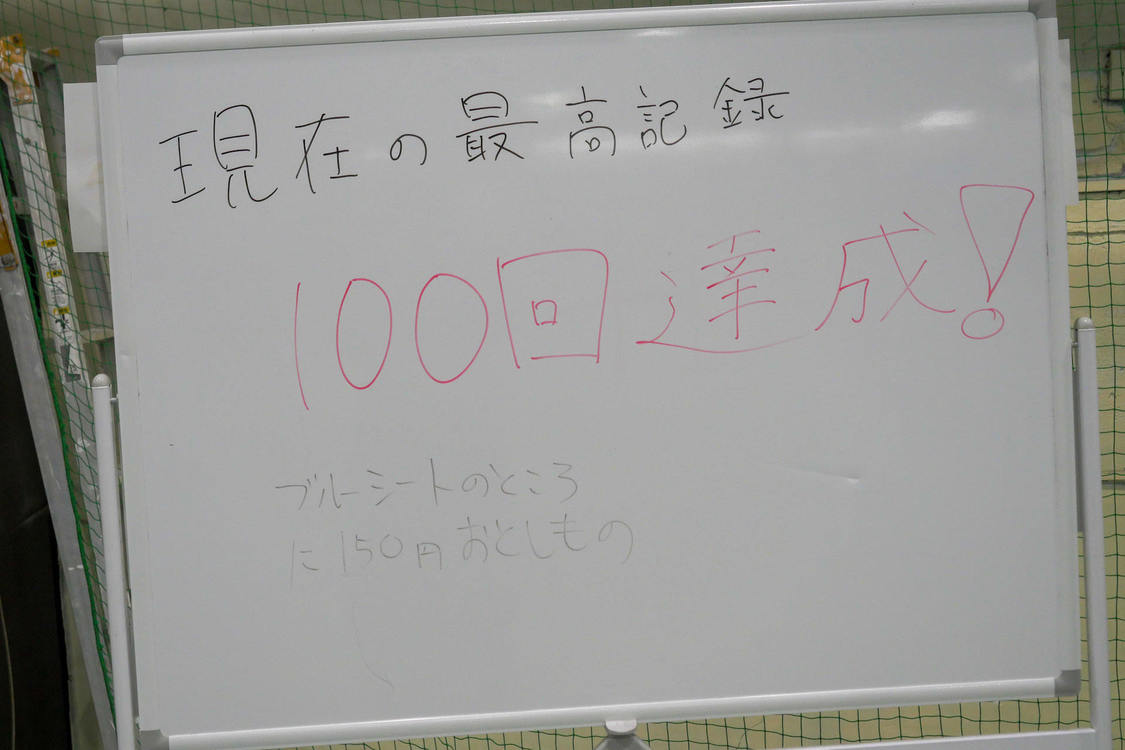 現在の最高記録
100回達成!
ブルーシートのところ
に150円おとしもの